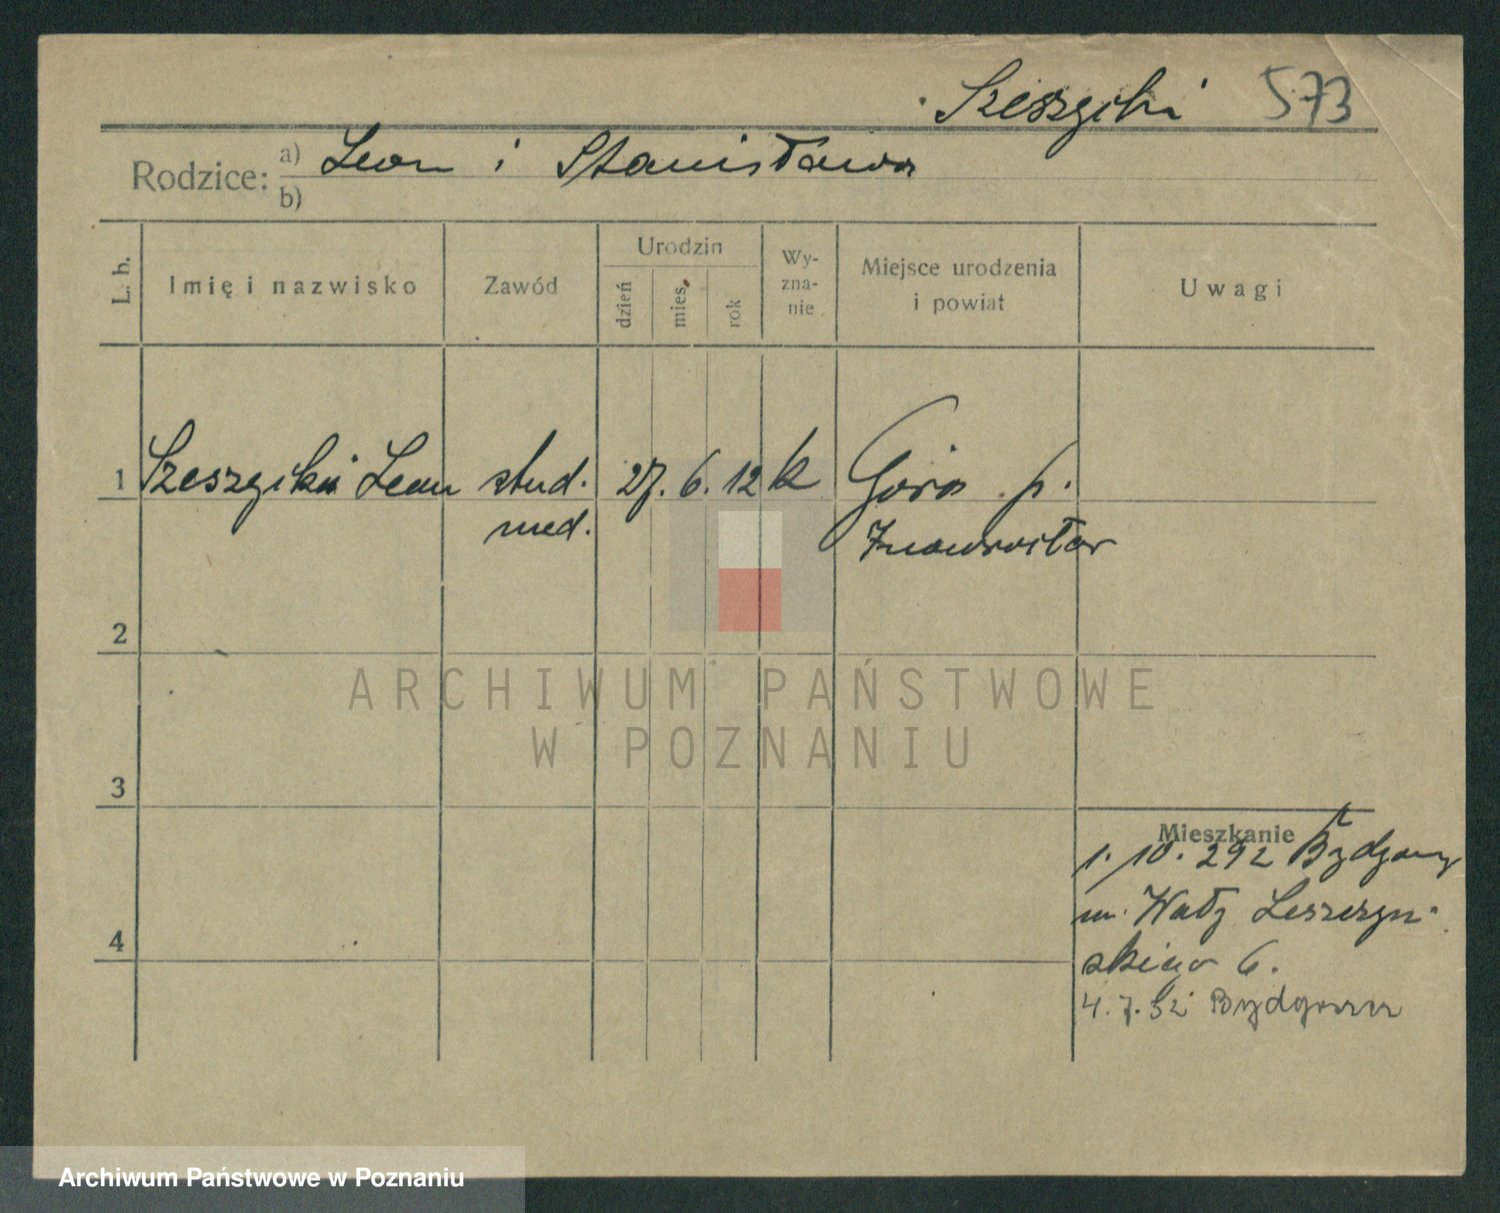 Szeszycki 573
Rodzice: a) Leon i Stanisława
b)
L. b. Imię i nazwisko Zawód Urodzin dzień mies. rok Wyznanie Miejsce urodzenia i powiat Uwagi
1 Szeszycki Leon stud. 27. 6. 12 k Góra p.
med. Inowrocław
2
ARCHIWUM PAŃSTWOWE
W POZNANIU
3
Mieszkanie
1. 10. Bydgoszcz
Wały Leszczyń-
skiego 6.
4
4. 7. 32 Bydgoszcz
Archiwum Państwowe w Poznaniu